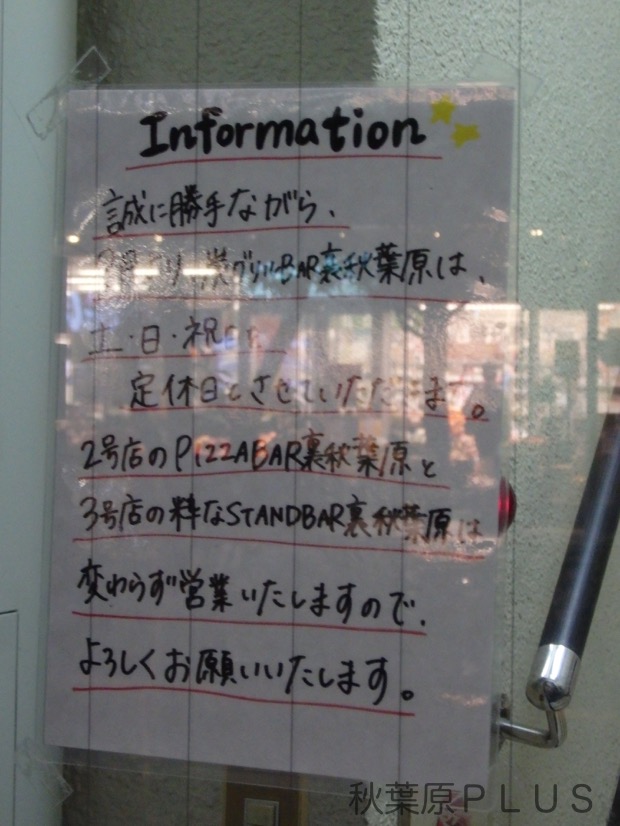 Information
誠に勝手ながら、
炭グリルBAR裏秋葉原は、
土・日・祝日は
定休日とさせていただきます。
2号店のPIZZABAR裏秋葉原と
3号店の粋なSTANDBAR裏秋葉原は
変わらず営業いたしますので、
よろしくお願いいたします。
秋葉原PLUS